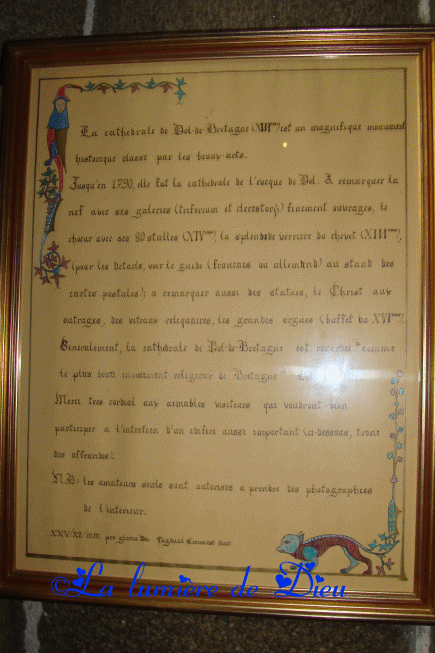 La cathedrale de Dol-de-Bretagne (XIIIème) est un magnifique monument
historique classé par les beaux-arts.
Jusqu'en 1790, elle fut la cathedrale de l'eveque de Dol. A remarquer la
nef avec ses galeries (triforium et clerestory) finement ouvrages, le
chœur avec ses 80 stalles (XIVème), la splendide verriere du chevet (XIIIème),
(pour les details, voir le guide (francais ou allemand) au stand des
cartes postales) a remarquer aussi des statues, le Christ aux
outrages, des vitraux reliquaires, les grandes orgues (buffet du XVIème).
Generalement, la cathedrale de Dol-de-Bretagne est regardee "comme
le plus beau monument religieux de Bretagne"
Merci tres cordial aux aimables visiteurs qui voudront bien
participer a l'entretien d'un edifice aussi important (ci-dessous, tronc
des offrandes).
N.B: les amateurs seuls sont autorises a prendre des photographies
de l'interieur.
XXX/XI/MM
©La lumière de Dieu